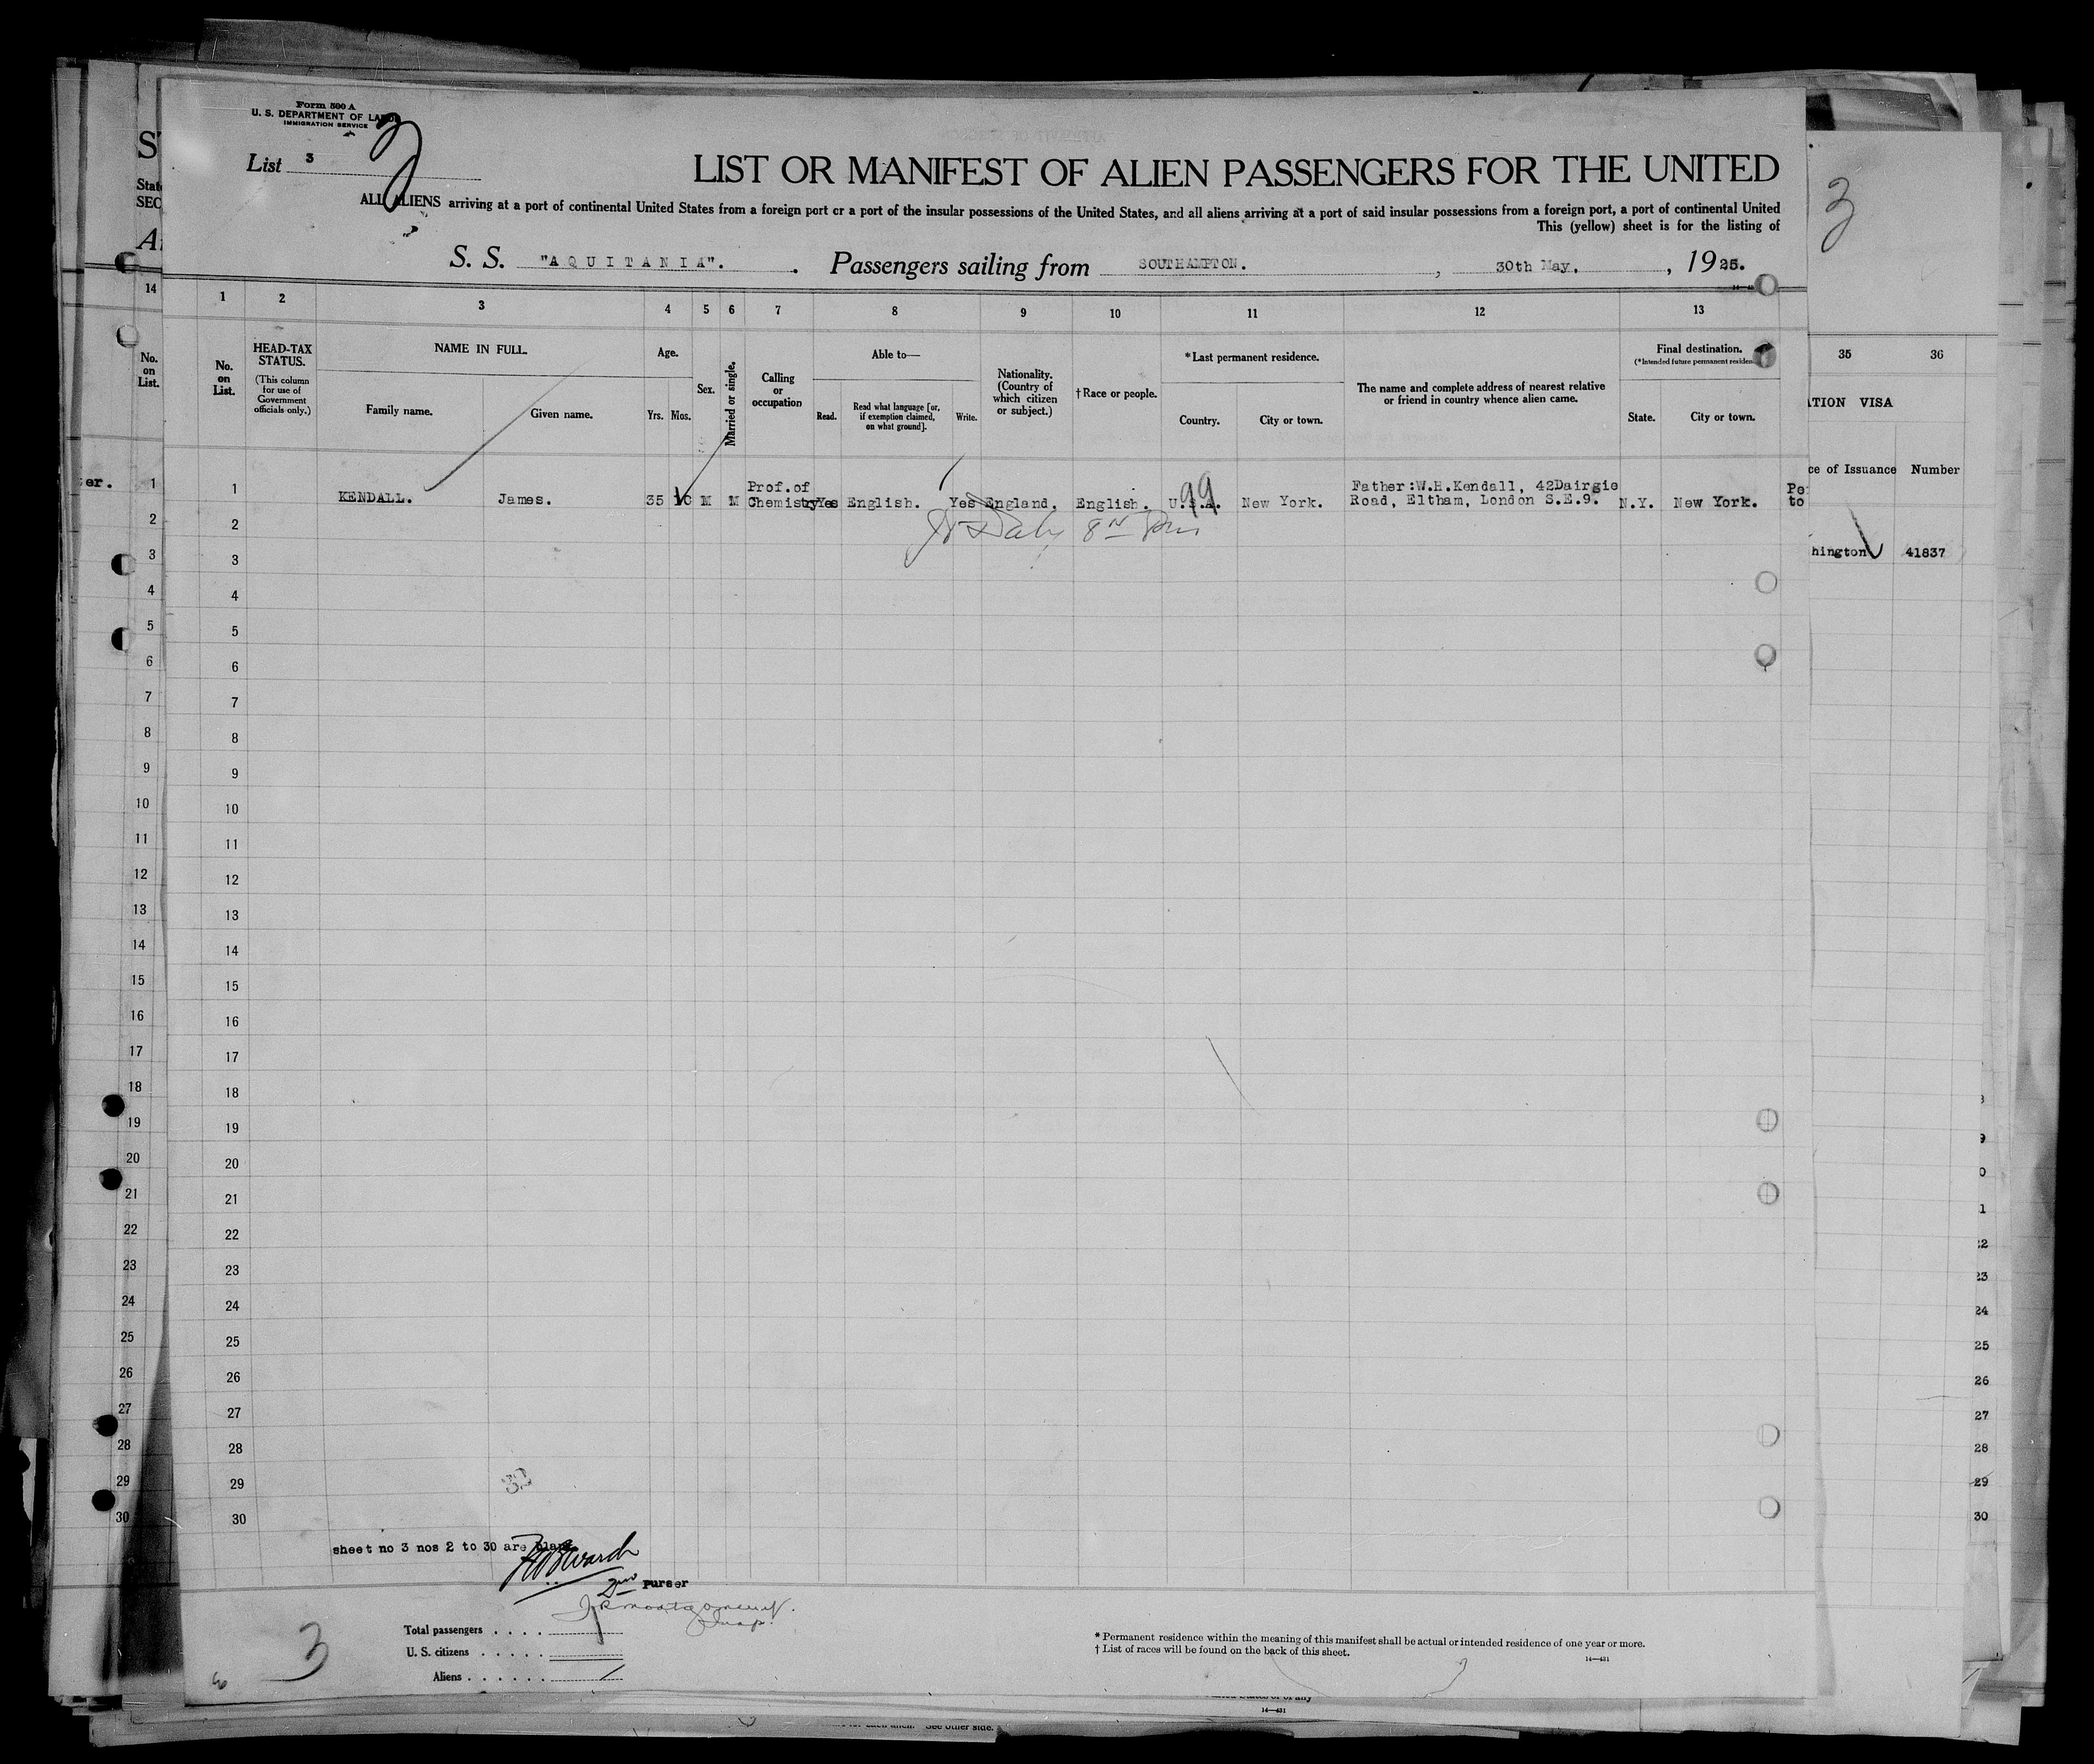 Form 500 A
U. S. DEPARTMENT OF LABOR
IMMIGRATION SERVICE
3
List 3
LIST OR MANIFEST OF ALIEN PASSENGERS FOR THE UNITED
ALL ALIENS arriving at a port of continental United States from a foreign port or a port of the insular possessions of the United States, and all aliens arriving at a port of said insular possessions from a foreign port, a port of continental United
This (yellow) sheet is for the listing of
S. S. "AQUITANIA". Passengers sailing from SOUTHAMPTON. , 30th May. , 1925.
1 2 3 4 5 6 7 8 9 10 11 12 13
No. on List.
HEAD-TAX STATUS.
(This column for use of Government officials only.)
NAME IN FULL.
Family name. Given name.
Age.
Yrs. Mos.
Sex.
Married or single.
Calling or occupation
Able to—
Read. Read what language [or, if exemption claimed, on what ground]. Write.
Nationality. (Country of which citizen or subject.)
† Race or people.
*Last permanent residence.
Country. City or town.
The name and complete address of nearest relative or friend in country whence alien came.
Final destination.
(*Intended future permanent residen
State. City or town.
1 KENDALL. James. 35 10 M M Prof. of Chemistry Yes English. Yes England. English. U.S.A. New York. Father:W.H.Kendall, 42Dairgie Road, Eltham, London S.E.9. N.Y. New York.
99
2
3
4
5
6
7
8
9
10
11
12
13
14
15
16
17
18
19
20
21
22
23
24
25
26
27
28
29
30
sheet no 3 nos 2 to 30 are blank
2nd Purser
Total passengers
U. S. citizens
Aliens
3
* Permanent residence within the meaning of this manifest shall be actual or intended residence of one year or more.
† List of races will be found on the back of this sheet.
14—431
14
No. on List.
1
2
3
4
5
6
7
8
9
10
11
12
13
14
15
16
17
18
19
20
21
22
23
24
25
26
27
28
29
30
3
35 36
TION VISA
ce of Issuance Number
hington 41837
22
23
24
25
26
27
28
29
30
14—431
See other side.